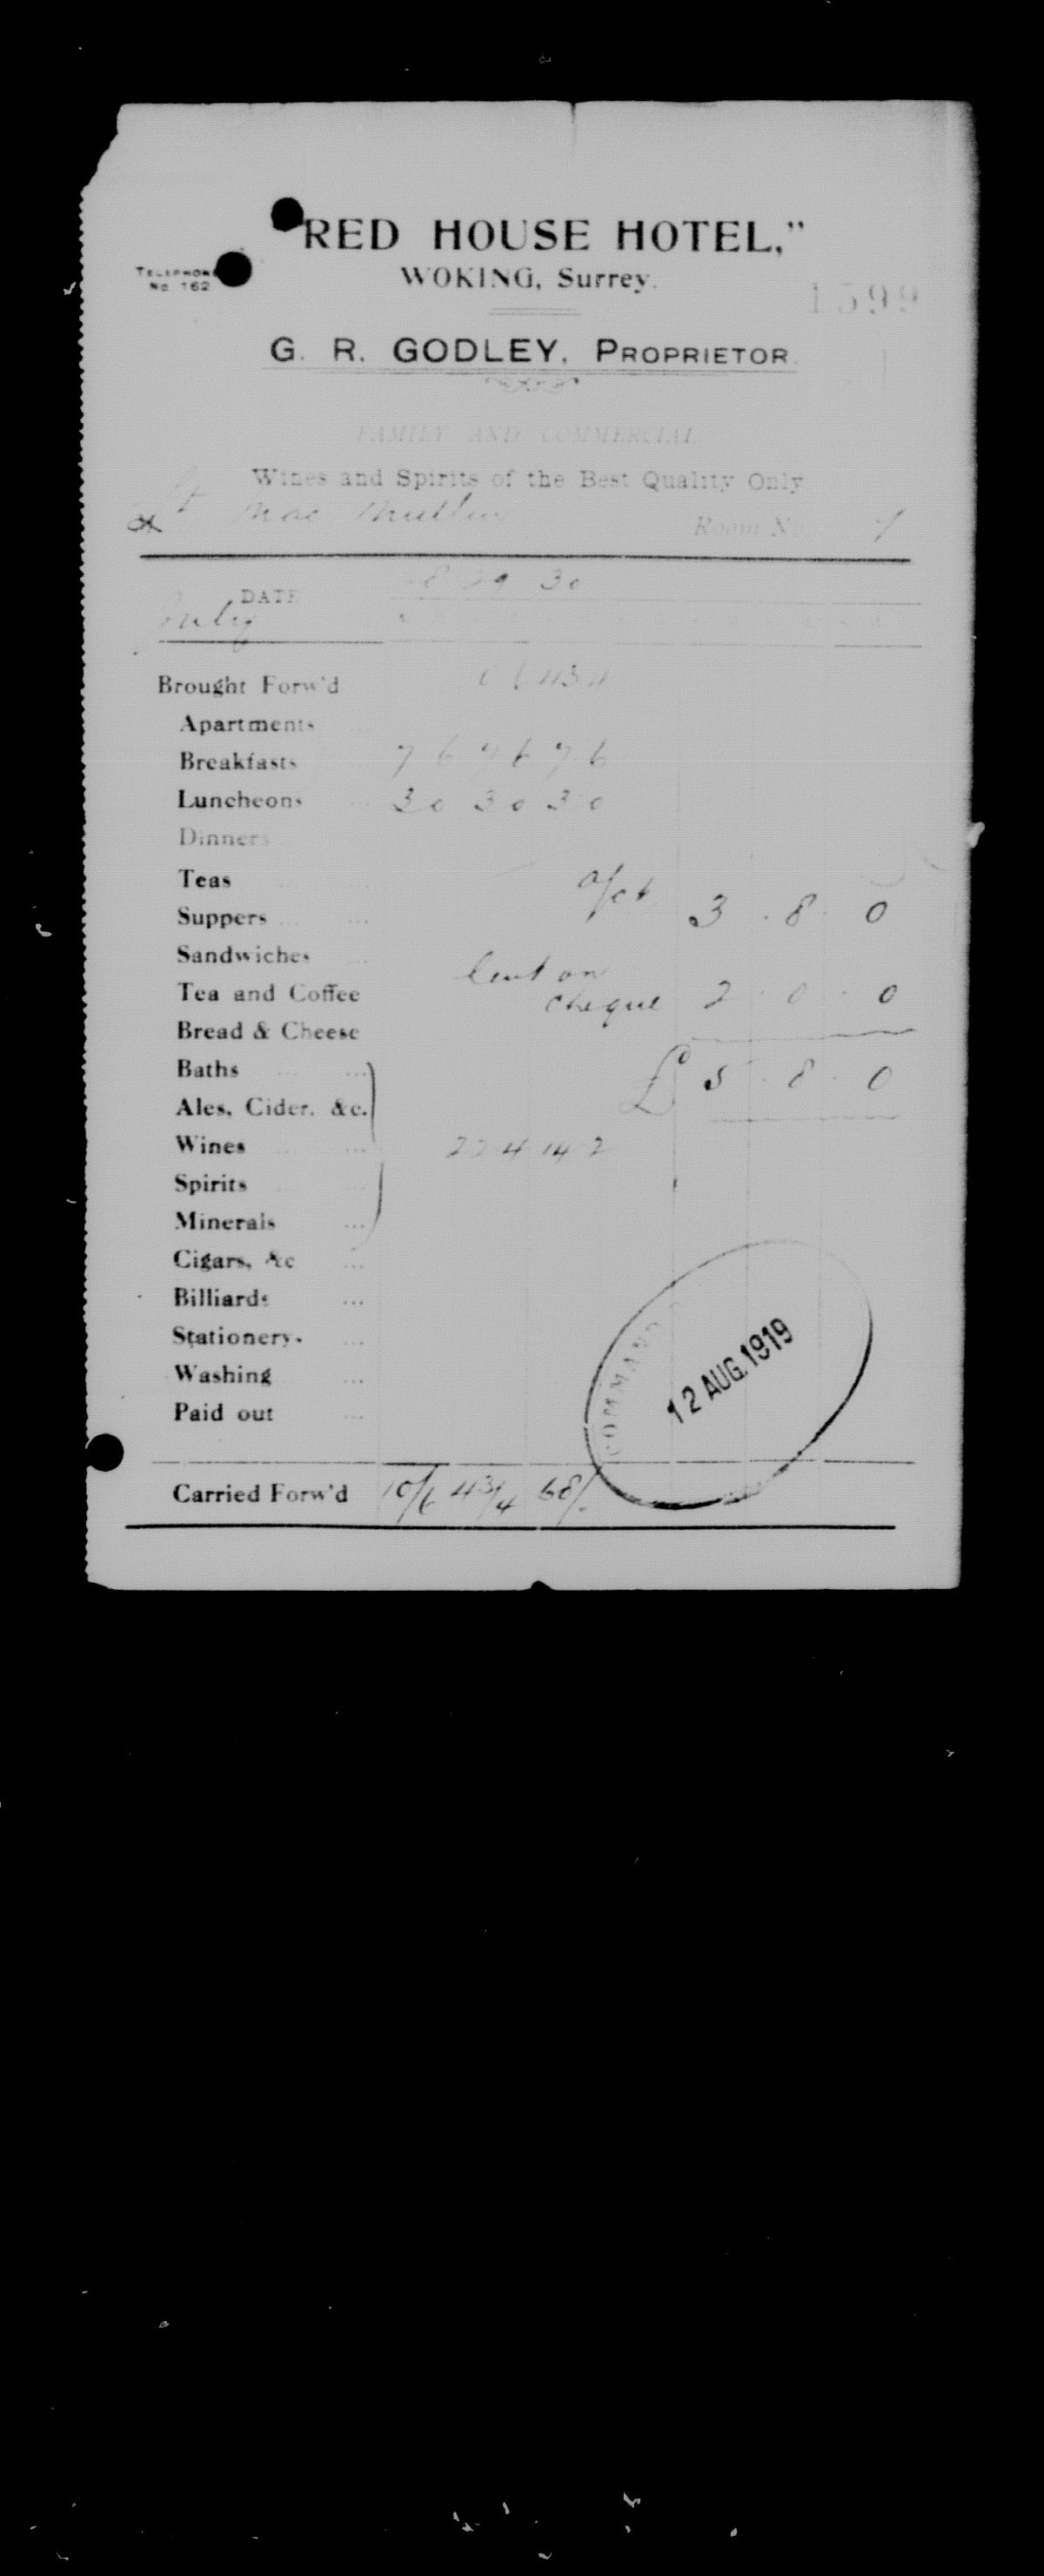 "RED HOUSE HOTEL,"
TELEPHONE
No 162
WOKING, Surrey.
1599
G. R. GODLEY, PROPRIETOR.
FAMILY AND COMMERCIAL
Wines and Spirits of the Best Quality Only
Lt Mac Mullin
Room No. 7
DATE 28 29 30
July
Brought Forw'd
Apartments
Breakfasts 7 6 7 6 7 6
Luncheons ... 3 0 3 0 3 0
Dinners
Teas
a/ct 3 . 8 . 0
Suppers ...
Sandwiches ...
Lent on
Tea and Coffee
cheque 2 . 0 . 0
Bread & Cheese
Baths ...
£ 5 . 8 . 0
Ales, Cider, &c.
Wines ...
Spirits
Minerals ...
Cigars, &c ...
Billiards ...
Stationery ...
Washing ...
Paid out ...
COMMAND
12 AUG. 1919
Carried Forw'd 10/6 43/4 68/-